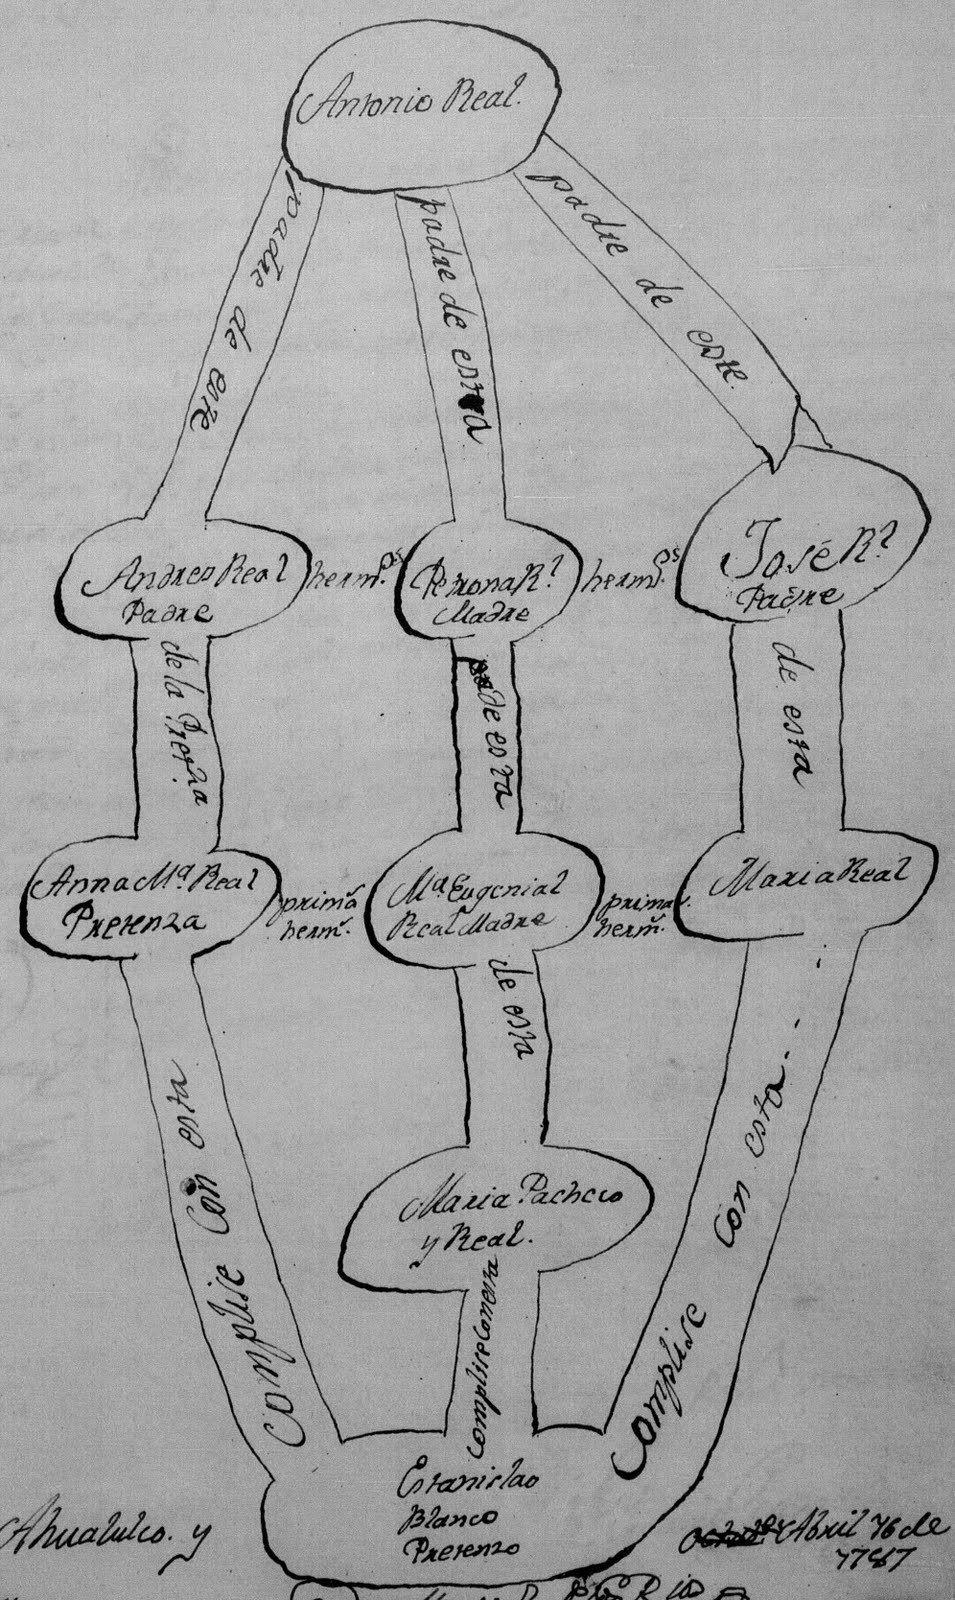 Antonio Real.
padre de este
padre de esta
padre de este
Andres Real
Padre
herm.os
Petrona R.l
Madre
herm.os
José R.l
Padre
de la Pret.za
de esta
de esta
Anna M.a Real
Pretenza
prima
herm.
M.a Eugenial
Real Madre
prima
herm.
Maria Real
de esta
Maria Pacheco
y Real.
Complise Con esta
complise conesta
Complise con esta
Estanislao
Blanco
Pretenzo
Ahualulco. y
Abril 16 de
1787